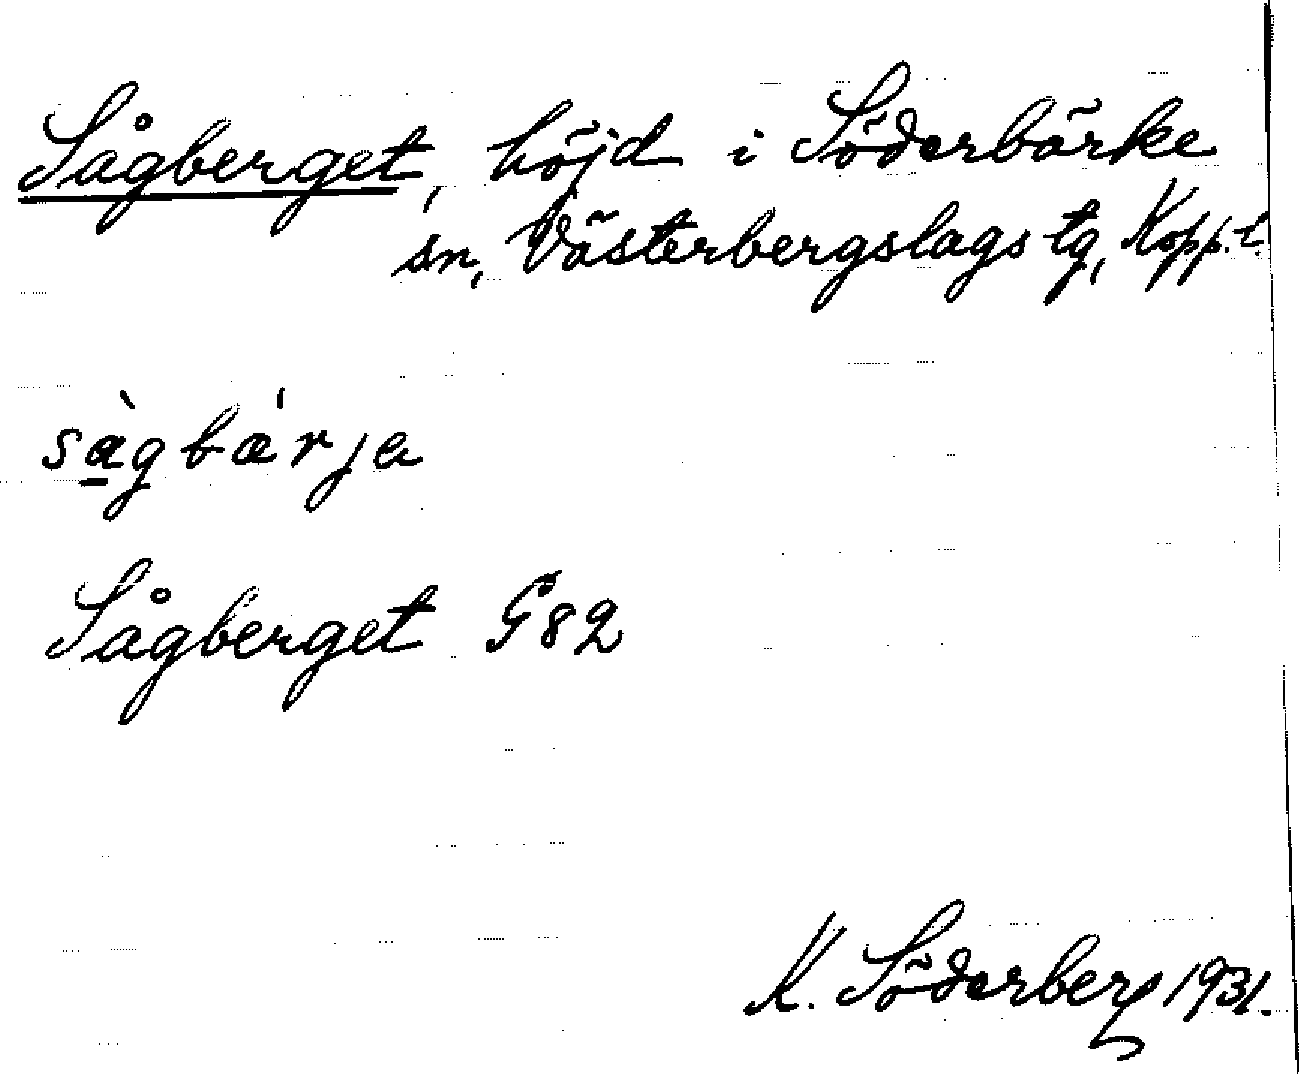 Sågberget, höjd i Söderbärke
sn, Västerbergslags tg, Kopp. l.
sàgbǽrja
Sågberget G 82
K. Söderberg 1931.